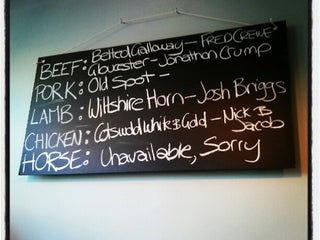 BEEF: Belted Galloway - FRED CREWE
Gloucester - Jonathon Crump
PORK: Old Spot -
LAMB: Wiltshire Horn - Josh Briggs
CHICKEN: Cotswold White & Gold - Nick & Jacob
HORSE: Unavailable, Sorry